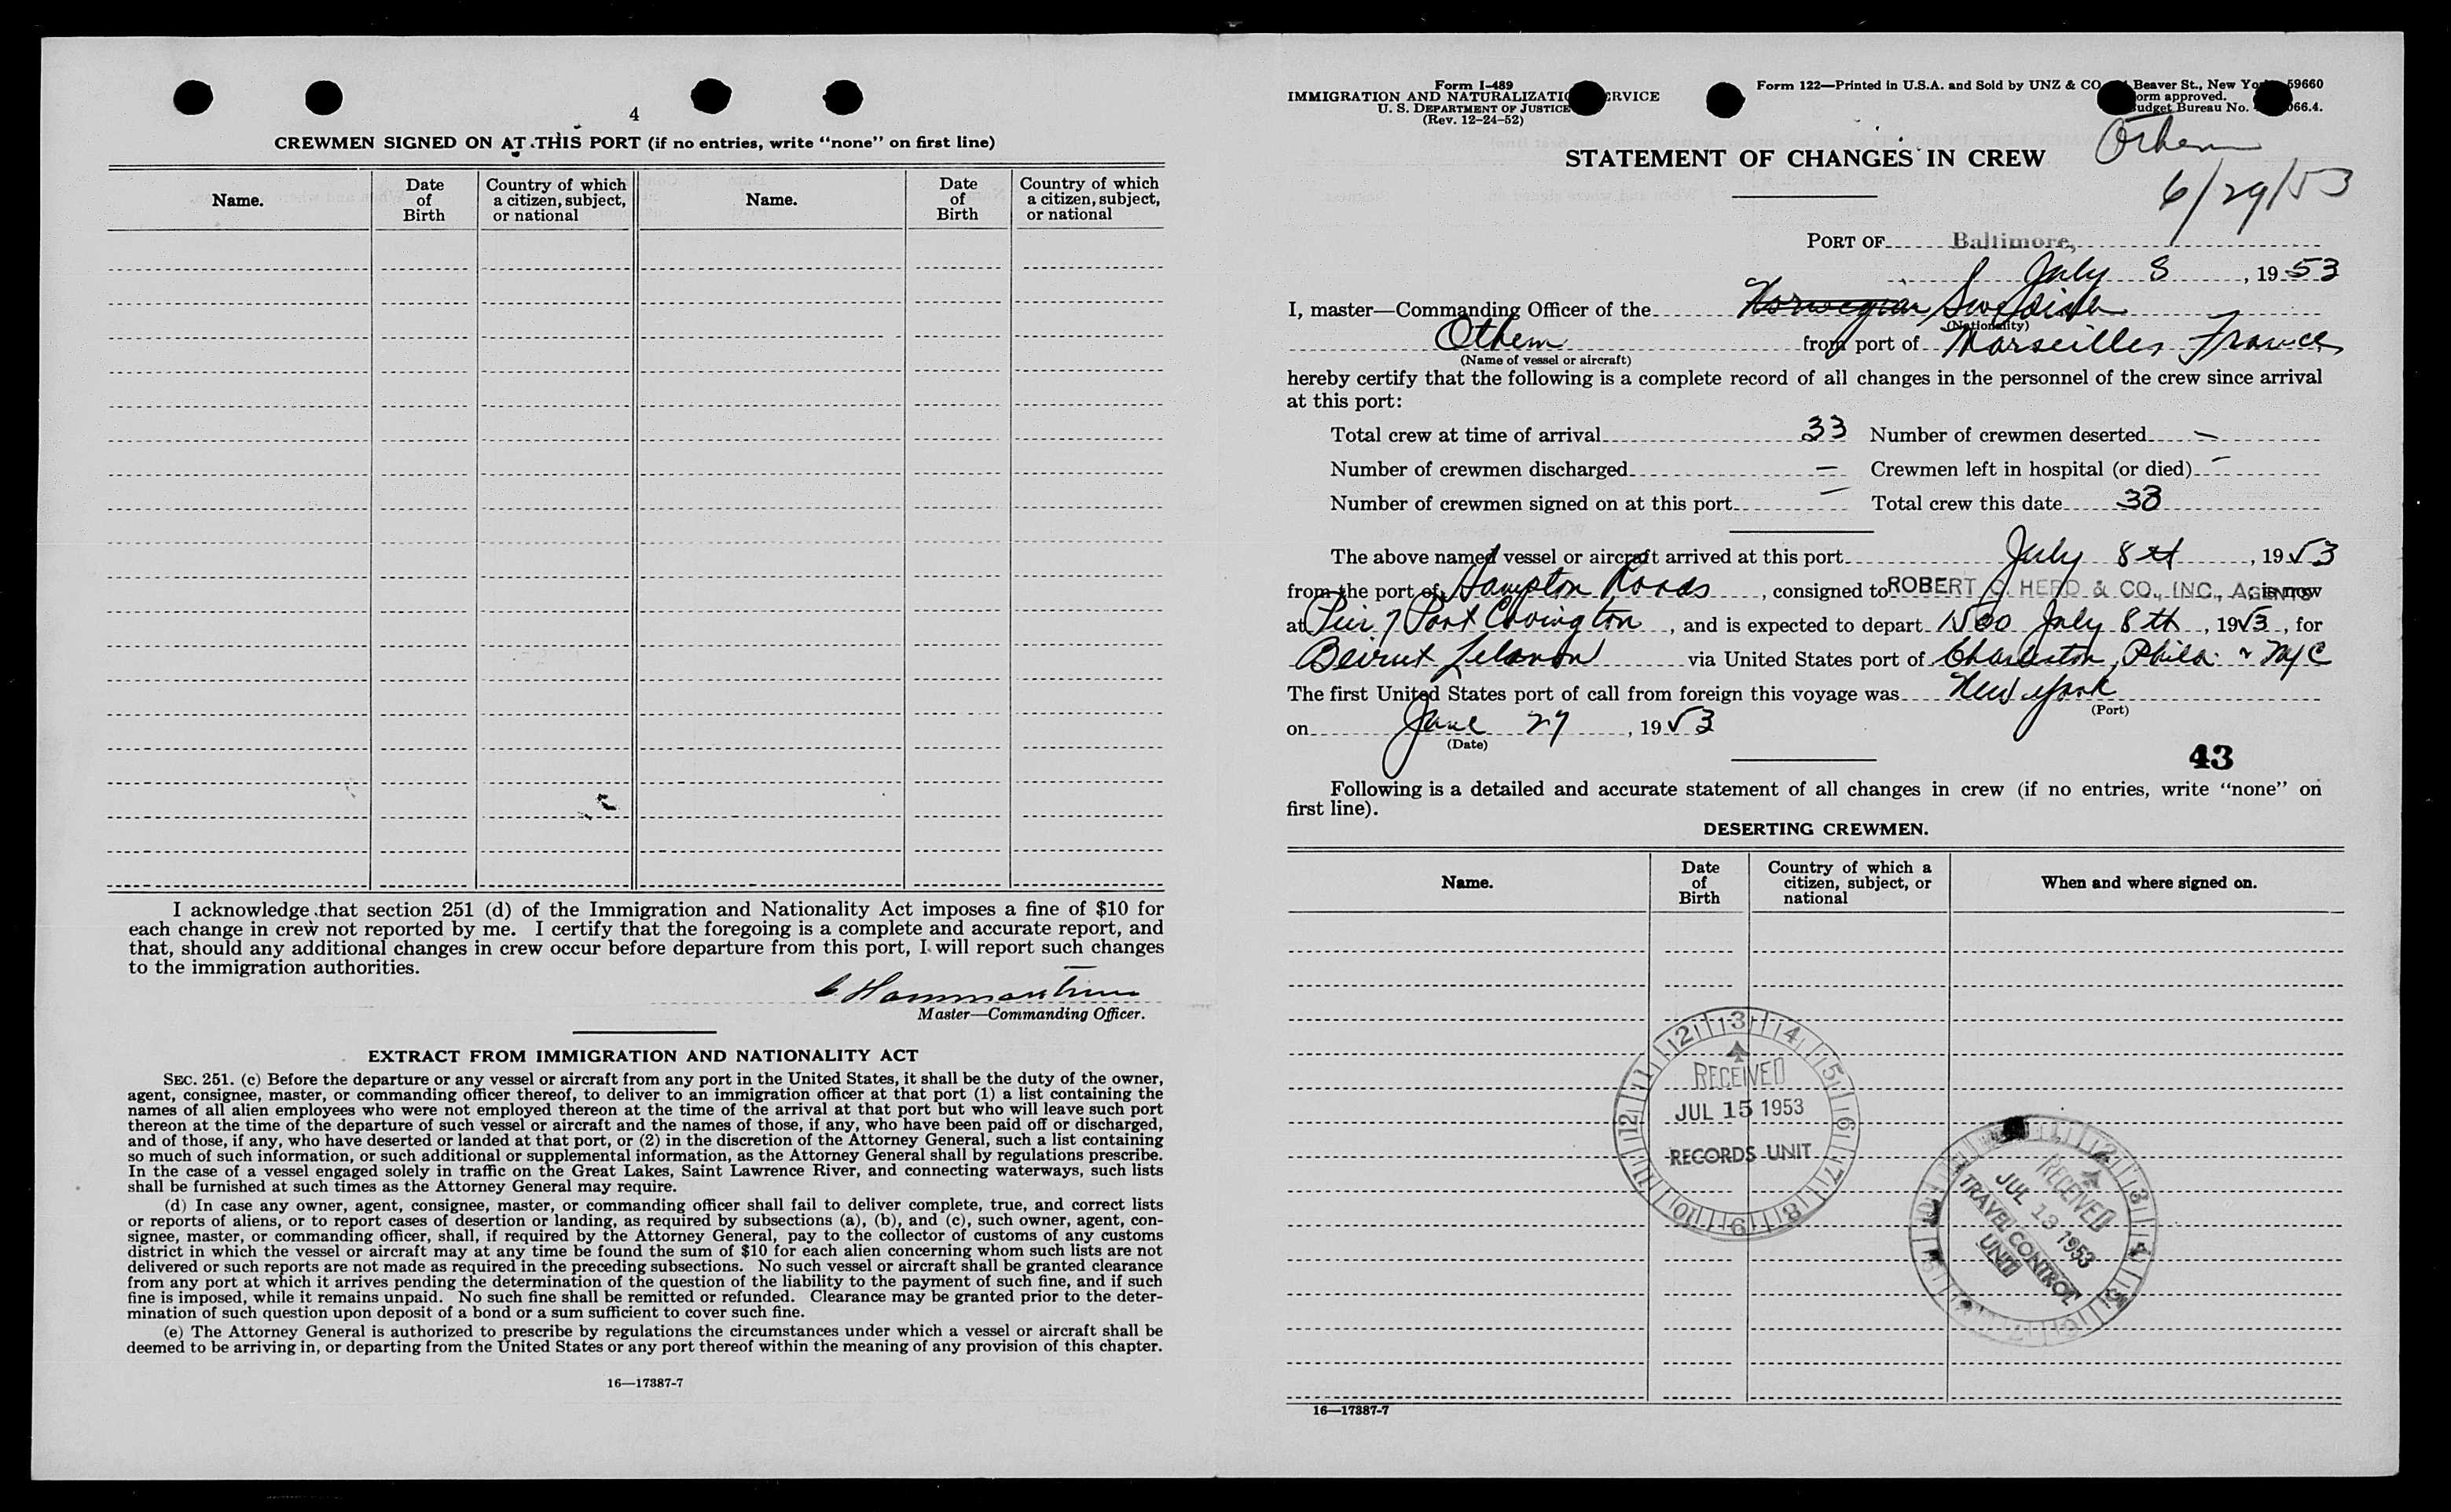 4
CREWMEN SIGNED ON AT THIS PORT (if no entries, write “none” on first line)
Name. Date of Birth Country of which a citizen, subject, or national Name. Date of Birth Country of which a citizen, subject, or national
I acknowledge that section 251 (d) of the Immigration and Nationality Act imposes a fine of $10 for
each change in crew not reported by me. I certify that the foregoing is a complete and accurate report, and
that, should any additional changes in crew occur before departure from this port, I will report such changes
to the immigration authorities.
Master—Commanding Officer.
EXTRACT FROM IMMIGRATION AND NATIONALITY ACT
SEC. 251. (c) Before the departure or any vessel or aircraft from any port in the United States, it shall be the duty of the owner,
agent, consignee, master, or commanding officer thereof, to deliver to an immigration officer at that port (1) a list containing the
names of all alien employees who were not employed thereon at the time of the arrival at that port but who will leave such port
thereon at the time of the departure of such vessel or aircraft and the names of those, if any, who have been paid off or discharged,
and of those, if any, who have deserted or landed at that port, or (2) in the discretion of the Attorney General, such a list containing
so much of such information, or such additional or supplemental information, as the Attorney General shall by regulations prescribe.
In the case of a vessel engaged solely in traffic on the Great Lakes, Saint Lawrence River, and connecting waterways, such lists
shall be furnished at such times as the Attorney General may require.
(d) In case any owner, agent, consignee, master, or commanding officer shall fail to deliver complete, true, and correct lists
or reports of aliens, or to report cases of desertion or landing, as required by subsections (a), (b), and (c), such owner, agent, con-
signee, master, or commanding officer, shall, if required by the Attorney General, pay to the collector of customs of any customs
district in which the vessel or aircraft may at any time be found the sum of $10 for each alien concerning whom such lists are not
delivered or such reports are not made as required in the preceding subsections. No such vessel or aircraft shall be granted clearance
from any port at which it arrives pending the determination of the question of the liability to the payment of such fine, and if such
fine is imposed, while it remains unpaid. No such fine shall be remitted or refunded. Clearance may be granted prior to the deter-
mination of such question upon deposit of a bond or a sum sufficient to cover such fine.
(e) The Attorney General is authorized to prescribe by regulations the circumstances under which a vessel or aircraft shall be
deemed to be arriving in, or departing from the United States or any port thereof within the meaning of any provision of this chapter.
16—17387-7
Form I-489
IMMIGRATION AND NATURALIZATION SERVICE
U. S. DEPARTMENT OF JUSTICE
(Rev. 12-24-52)
Form 122—Printed in U.S.A. and Sold by UNZ & CO Beaver St., New York 59660
orm approved.
udget Bureau No. 066.4.
Othem
6/29/53
STATEMENT OF CHANGES IN CREW
PORT OF Baltimore,
July 8, 1953
I, master—Commanding Officer of the Norwegian Swedish
(Nationality)
Othem from port of Marseilles France
(Name of vessel or aircraft)
hereby certify that the following is a complete record of all changes in the personnel of the crew since arrival
at this port:
Total crew at time of arrival 33 Number of crewmen deserted —
Number of crewmen discharged — Crewmen left in hospital (or died) —
Number of crewmen signed on at this port — Total crew this date 33
The above named vessel or aircraft arrived at this port July 8th, 1953
from the port of Hampton Roads, consigned to ROBERT C. HERD & CO., INC., AGENTS is now
at Pier 7 Port Covington, and is expected to depart 1500 July 8th, 1953, for
Beirut Lebanon via United States port of Charleston, Phila. & NYC
The first United States port of call from foreign this voyage was New York
(Port)
on June 27, 1953
(Date)
43
Following is a detailed and accurate statement of all changes in crew (if no entries, write “none” on
first line).
DESERTING CREWMEN.
Name. Date of Birth Country of which a citizen, subject, or national When and where signed on.
12 1 2 3 4 5 6 7 8 9 10 11
RECEIVED
JUL 15 1953
RECORDS UNIT
RECEIVED
JUL 13 1953
TRAVEL CONTROL
UNIT
16—17387-7